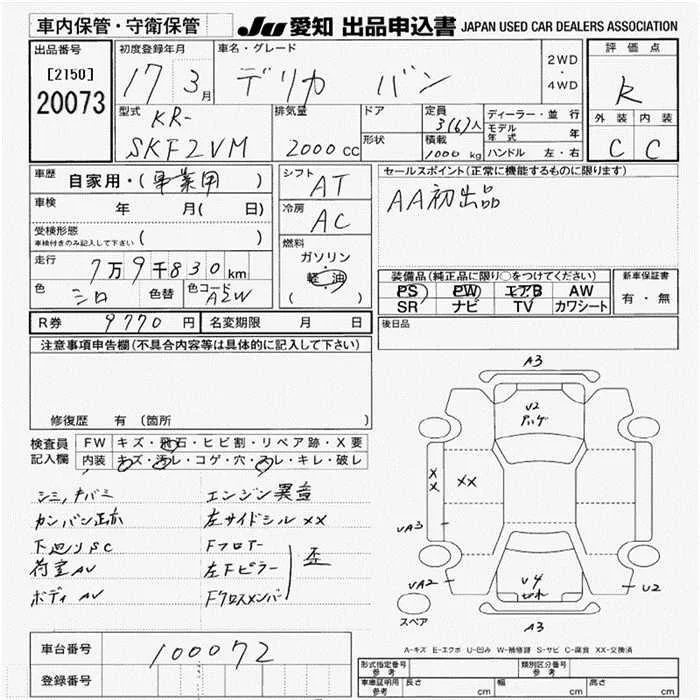 車内保管・守衛保管
JU 愛知 出品申込書 JAPAN USED CAR DEALERS ASSOCIATION
出品番号
[2150]
20073
初度登録年月
17 3月
車名・グレード
デリカ バン
2WD
・
4WD
評価点
R
外装 内装
C C
型式
KR-
SKF2VM
排気量
2000 cc
ドア
形状
定員
3(6)人
積載
1000 kg
ディーラー・並行
モデル年式 年
ハンドル 左・右
車歴
自家用・(事業用 )
車検 年 月( 日)
受検形態
車検付きのみ記入して下さい ( )
走行 7万9千830km
色 シロ 色替 色コード A2W
シフト
AT
冷房
AC
燃料
ガソリン
軽・油
( )
セールスポイント(正常に機能するものに限ります)
AA初出品
装備品(純正品に限り○をつけてください)
PS PW エアB AW
SR ナビ TV カワシート
新車保証書
有・無
R券 9770円 名変期限 月 日
後日品
注意事項申告欄(不具合内容等は具体的に記入して下さい)
修復歴 有 (箇所
検査員
記入欄
FW キズ・飛石・ヒビ割・リペア跡・X要
内装 キズ・汚レ・コゲ・穴・スレ・キレ・破レ
シミ,キバミ
カンバン正赤
下廻りSC
荷室AV
ボディAV
エンジン異音
左サイドシルXX
Fフロアー
左Fピラー
Fクロスメンバー
歪
A3
U2
XX
XX
UA3
UA2
U4
U2
A3
スペア
A-キズ E-エクボ U-凹み W-補修跡 S-サビ C-腐食 XX-交換済
車台番号 100072
登録番号
形式指定番号
参考
類別区分番号
参考
車庫証明用
参考
長さ cm 幅 cm 高さ cm